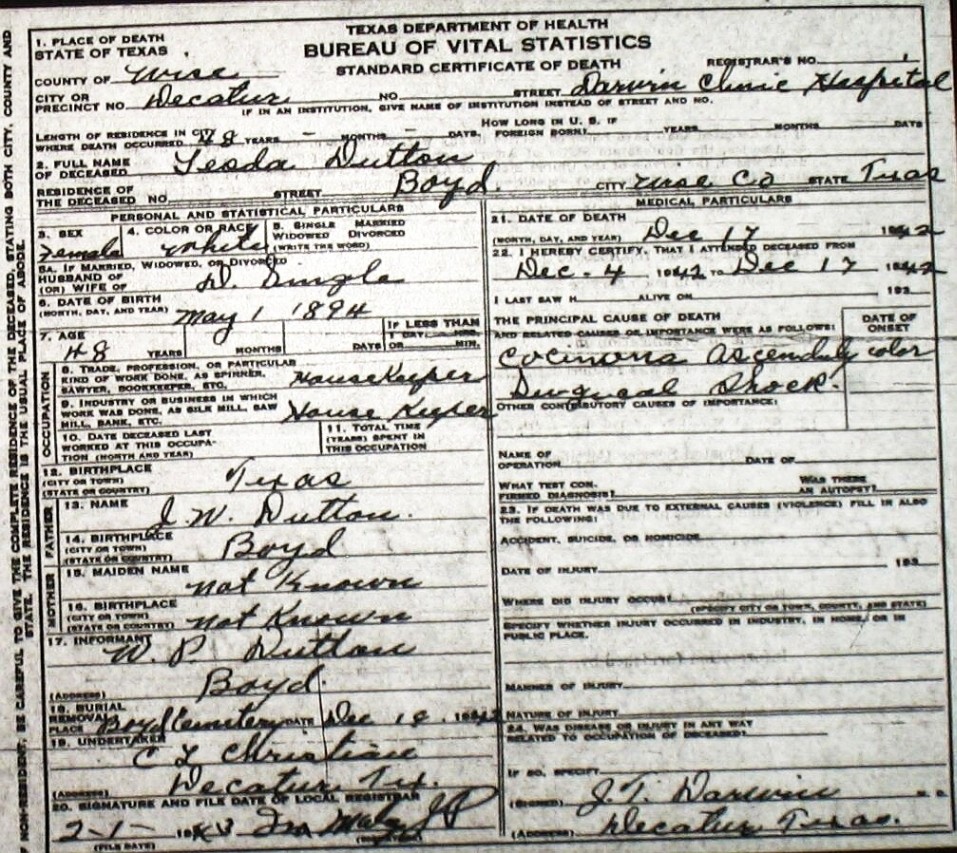 TEXAS DEPARTMENT OF HEALTH
BUREAU OF VITAL STATISTICS
STANDARD CERTIFICATE OF DEATH
REGISTRAR'S NO.
1. PLACE OF DEATH
STATE OF TEXAS
COUNTY OF Wise
CITY OR PRECINCT NO. Decatur NO. STREET Darwin Clinic Hospital
IF IN AN INSTITUTION, GIVE NAME OF INSTITUTION INSTEAD OF STREET AND NO.
LENGTH OF RESIDENCE IN CITY WHERE DEATH OCCURRED 48 YEARS - MONTHS - DAYS. HOW LONG IN U. S. IF FOREIGN BORN? YEARS MONTHS DAYS
2. FULL NAME OF DECEASED Dutton
RESIDENCE OF THE DECEASED NO. STREET Boyd CITY Wise Co STATE Texas
PERSONAL AND STATISTICAL PARTICULARS
3. SEX Female
4. COLOR OR RACE White
5. SINGLE MARRIED WIDOWED DIVORCED (WRITE THE WORD)
5A. IF MARRIED, WIDOWED, OR DIVORCED
HUSBAND OF (OR) WIFE OF Single
6. DATE OF BIRTH (MONTH, DAY, AND YEAR) May 1 1894
7. AGE 48 YEARS MONTHS DAYS IF LESS THAN 1 DAY HRS. OR MIN.
OCCUPATION
8. TRADE, PROFESSION, OR PARTICULAR KIND OF WORK DONE, AS SPINNER, SAWYER, BOOKKEEPER, ETC. HouseKeeper
9. INDUSTRY OR BUSINESS IN WHICH WORK WAS DONE, AS SILK MILL, SAW MILL, BANK, ETC. House Keeper
10. DATE DECEASED LAST WORKED AT THIS OCCUPATION (MONTH AND YEAR)
11. TOTAL TIME (YEARS) SPENT IN THIS OCCUPATION
12. BIRTHPLACE (CITY OR TOWN) (STATE OR COUNTRY) Texas
FATHER
13. NAME J. W. Dutton.
14. BIRTHPLACE (CITY OR TOWN) (STATE OR COUNTRY) Boyd
MOTHER
15. MAIDEN NAME not Known
16. BIRTHPLACE (CITY OR TOWN) (STATE OR COUNTRY) not Known
17. INFORMANT W. P. Dutton
(ADDRESS) Boyd.
18. BURIAL REMOVAL
PLACE Boyd Cemetery DATE Dec 194
19. UNDERTAKER C L Christian
(ADDRESS) Decatur Tex.
20. SIGNATURE AND FILE DATE OF LOCAL REGISTRAR
2-1- 1943 JP
(FILE DATE)
MEDICAL PARTICULARS
21. DATE OF DEATH
(MONTH, DAY, AND YEAR) Dec 17 1942
22. I HEREBY CERTIFY, THAT I ATTENDED DECEASED FROM
Dec. 4 1942 TO Dec 17 1942
I LAST SAW H ALIVE ON 193
THE PRINCIPAL CAUSE OF DEATH AND RELATED CAUSES OF IMPORTANCE WERE AS FOLLOWS:
DATE OF ONSET
Surgical Shock.
OTHER CONTRIBUTORY CAUSES OF IMPORTANCE:
NAME OF OPERATION DATE OF
WHAT TEST CONFIRMED DIAGNOSIS? WAS THERE AN AUTOPSY?
23. IF DEATH WAS DUE TO EXTERNAL CAUSES (VIOLENCE) FILL IN ALSO THE FOLLOWING:
ACCIDENT, SUICIDE, OR HOMICIDE
DATE OF INJURY 193
WHERE DID INJURY OCCUR?
(SPECIFY CITY OR TOWN, COUNTY, AND STATE)
SPECIFY WHETHER INJURY OCCURRED IN INDUSTRY, IN HOME, OR IN PUBLIC PLACE.
MANNER OF INJURY
NATURE OF INJURY
24. WAS DISEASE OR INJURY IN ANY WAY RELATED TO OCCUPATION OF DECEASED?
IF SO, SPECIFY
(SIGNED) J. T. Darwin M. D.
(ADDRESS) Decatur Texas.
NON-RESIDENT, BE CAREFUL TO GIVE THE COMPLETE RESIDENCE OF THE DECEASED, STATING BOTH CITY, COUNTY AND
STATE. THE RESIDENCE IS THE USUAL PLACE OF ABODE.